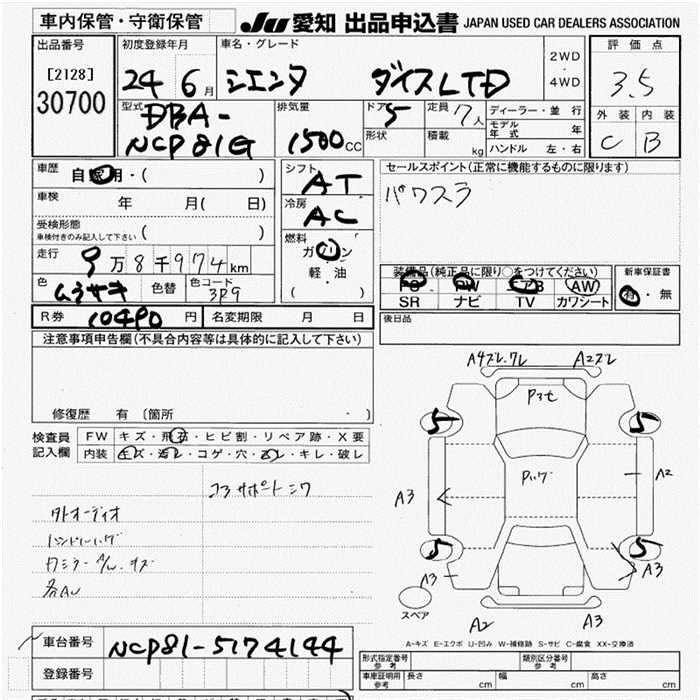 車内保管・守衛保管
JU 愛知 出品申込書 JAPAN USED CAR DEALERS ASSOCIATION
出品番号
[2128]
30700
初度登録年月
24 6月
車名・グレード
シエンタ ダイスLTD
2WD
4WD
評価点
3.5
外装 内装
C B
型式
DBA-
NCP81G
排気量
1500cc
ドア 5
形状
定員 7人
積載 kg
ディーラー・並行
モデル年式 年
ハンドル 左・右
車歴
自家用・( )
車検 年 月( 日)
受検形態
車検付きのみ記入して下さい ( )
走行
9万8千974km
色 ムラサキ 色替 色コード 3P9
シフト
AT
冷房
AC
燃料
ガソリン
軽・油
( )
セールスポイント(正常に機能するものに限ります)
パワスラ
装備品(純正品に限り○をつけてください)
PS PW エアB AW
SR ナビ TV カワシート
新車保証書
有・無
R券 10490円 名変期限 月 日
後日品
注意事項申告欄(不具合内容等は具体的に記入して下さい)
修復歴 有〔箇所 〕
検査員
記入欄
FW キズ・飛石・ヒビ割・リペア跡・X要
内装 キズ・汚レ・コゲ・穴・スレ・キレ・破レ
コラサポートシワ
外オーディオ
各AU
A4スレ.ワレ A2スレ
Pマセ
5 5
A2
A3
5 5
A3 A3
スペア
A2 A3
A-キズ E-エクボ U-凹み W-補修跡 S-サビ C-腐食 XX-交換済
車台番号 NCP81-5174144
登録番号
形式指定番号 参考
類別区分番号 参考
車庫証明用 参考
長さ cm 幅 cm 高さ cm